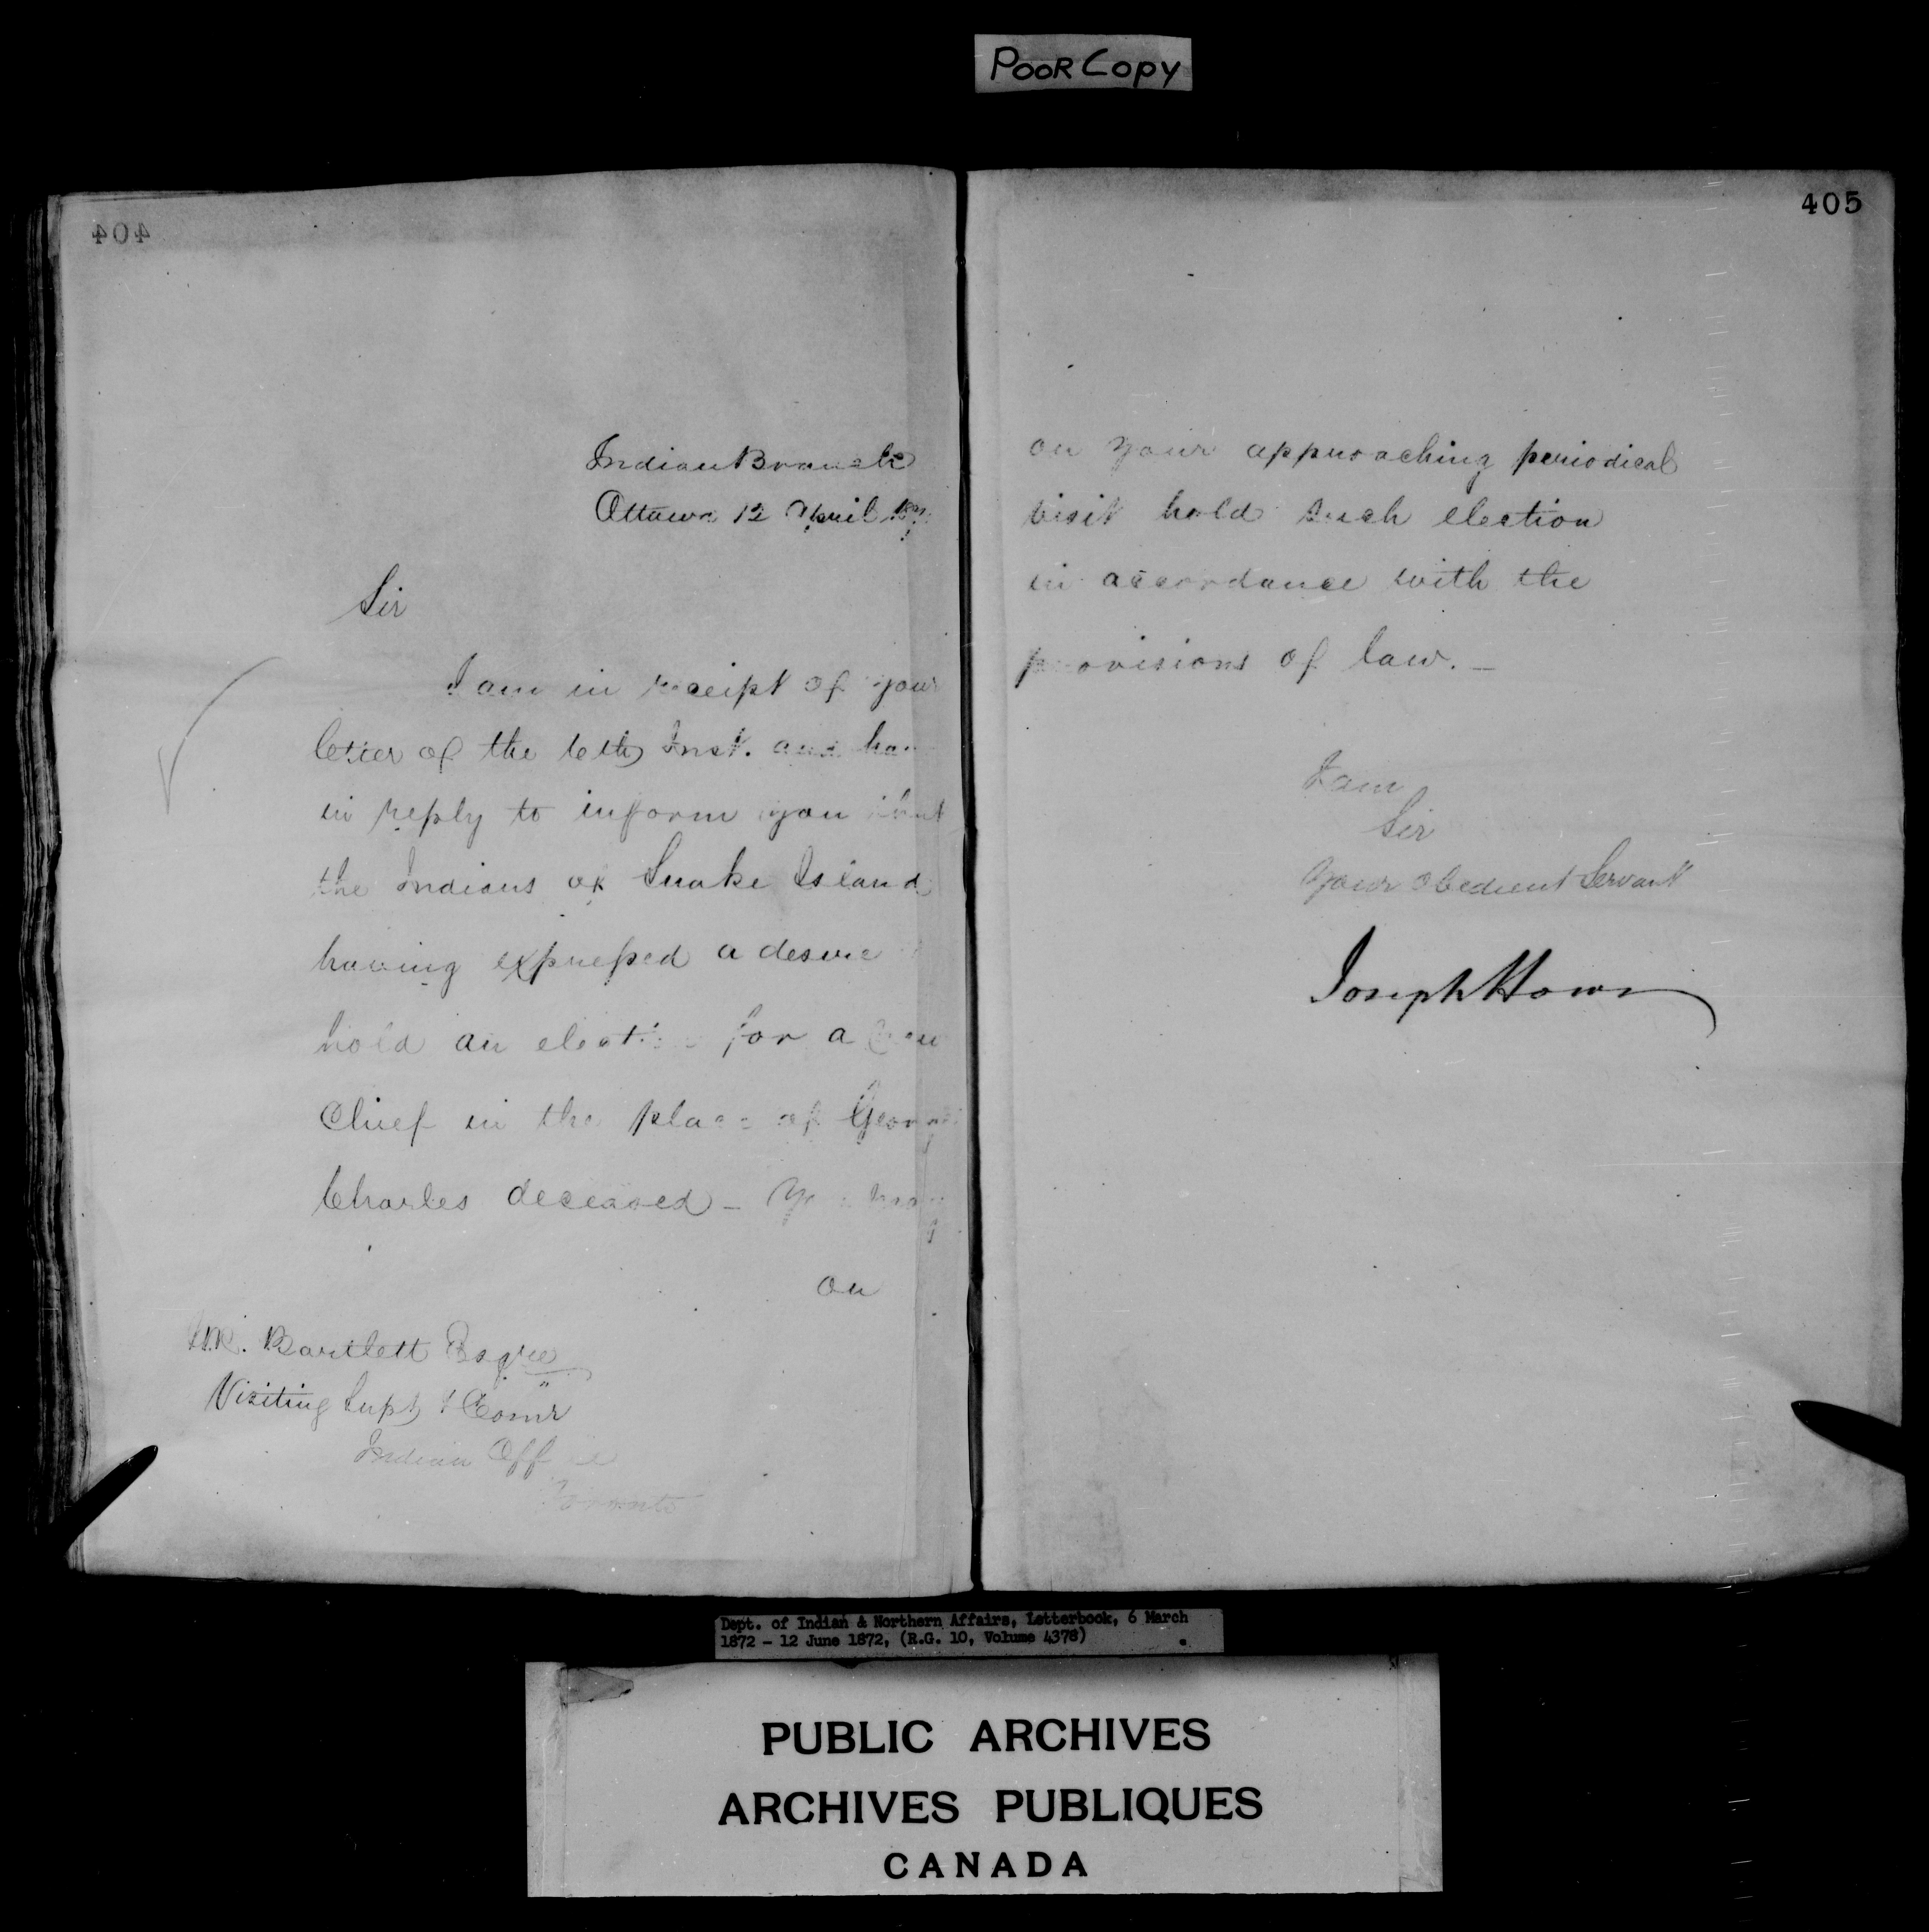 POOR Copy
404
Indian Branch
Ottawa 12 April
Sir
I am in receipt of your
letter of the 10th Inst. and have
in reply to inform you that
the Indians of Snake Island
having expressed a desire
hold an election for a
Chief in the place of George
Charles deceased - You may
on
Bartlett Esqre
Visiting Supt & Comr
Indian Office
Toronto
405
on your approaching periodical
visit hold such election
in accordance with the
provisions of law. -
I am
Sir
Your obedient Servant
Joseph Howe
Dept. of Indian & Northern Affairs, Letterbook, 6 March
1872 - 12 June 1872, (R.G. 10, Volume 4378)
PUBLIC ARCHIVES
ARCHIVES PUBLIQUES
CANADA